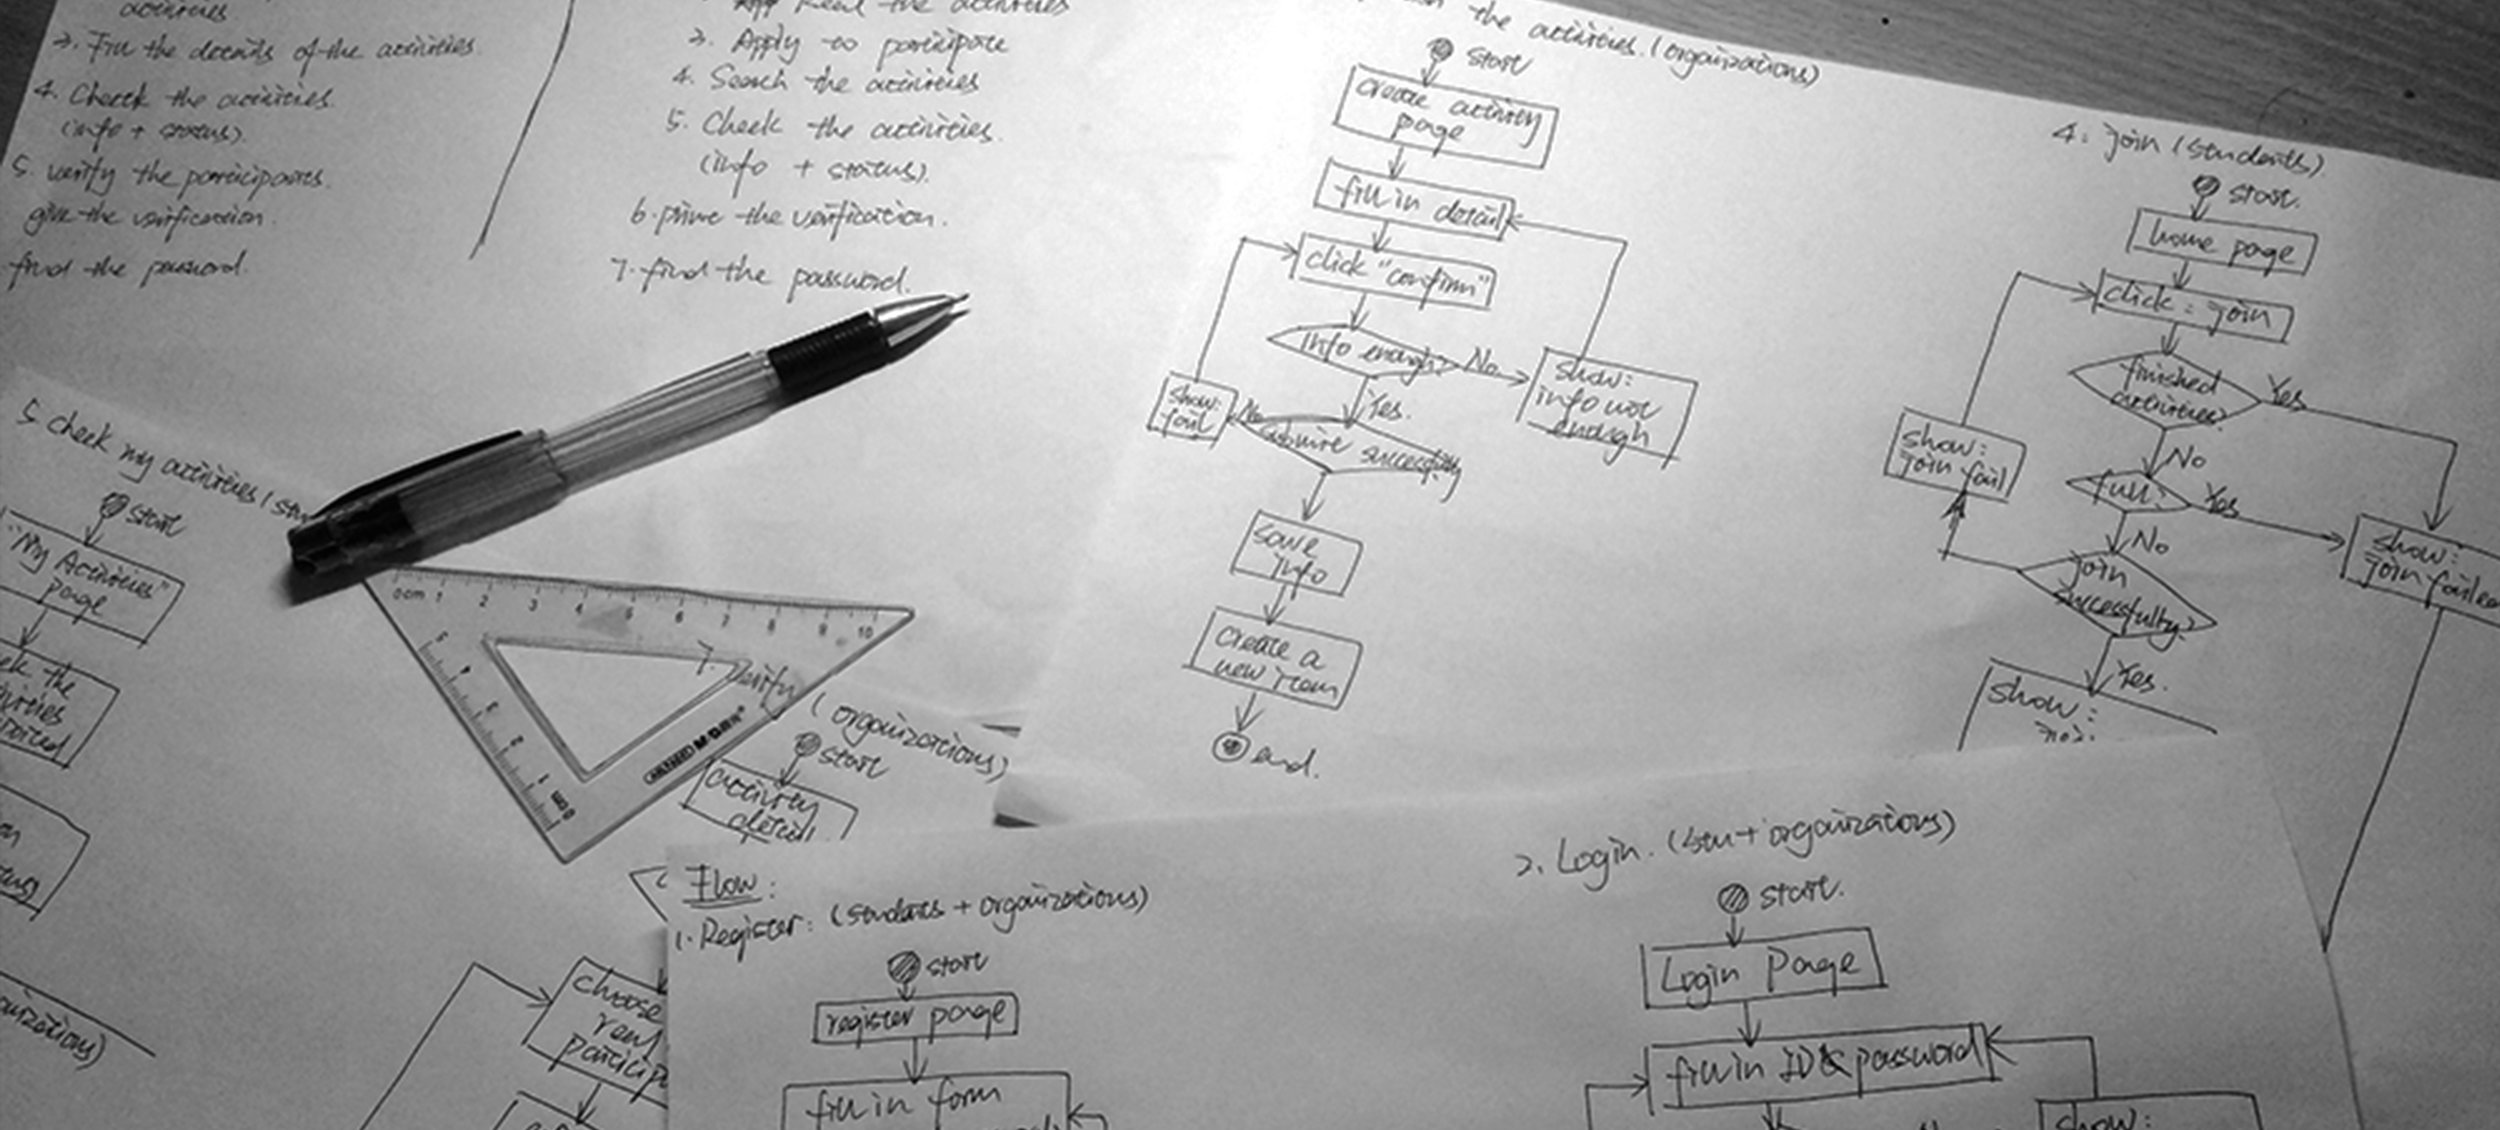 activities
3. Fill the details of the activities
4. Check the activities.
(info + status).
5. verify the participants.
give the verification.
find the password.
Read the activities
3. Apply to participate
4. Search the activities
5. Check the activities.
(info + status).
6. print the verification.
7. find the password.
the activities. (organizations)
start
create activity
page
fill in detail
click "confirm"
info enough?
No
show:
info not
enough
Yes.
submit successfully
No
show:
fail
save
info
create a
new item
end.
4. join (students)
start.
home page
click: join
finished
activities?
Yes
No
full?
Yes
No
show:
join fail
join
successfully?
Yes.
show:
show:
join failed
5. check my activities (stu
start
"My Activities"
page
the
0 cm 1 2 3 4 5 6 7 8 9 10
M&G
7. Verify (organizations)
start
activity
detail
choose
particip
Flow:
1. Register: (students + organizations)
start
register page
fill in form
2. Login. (stu + organizations)
start.
Login Page
fill in ID & password
show: